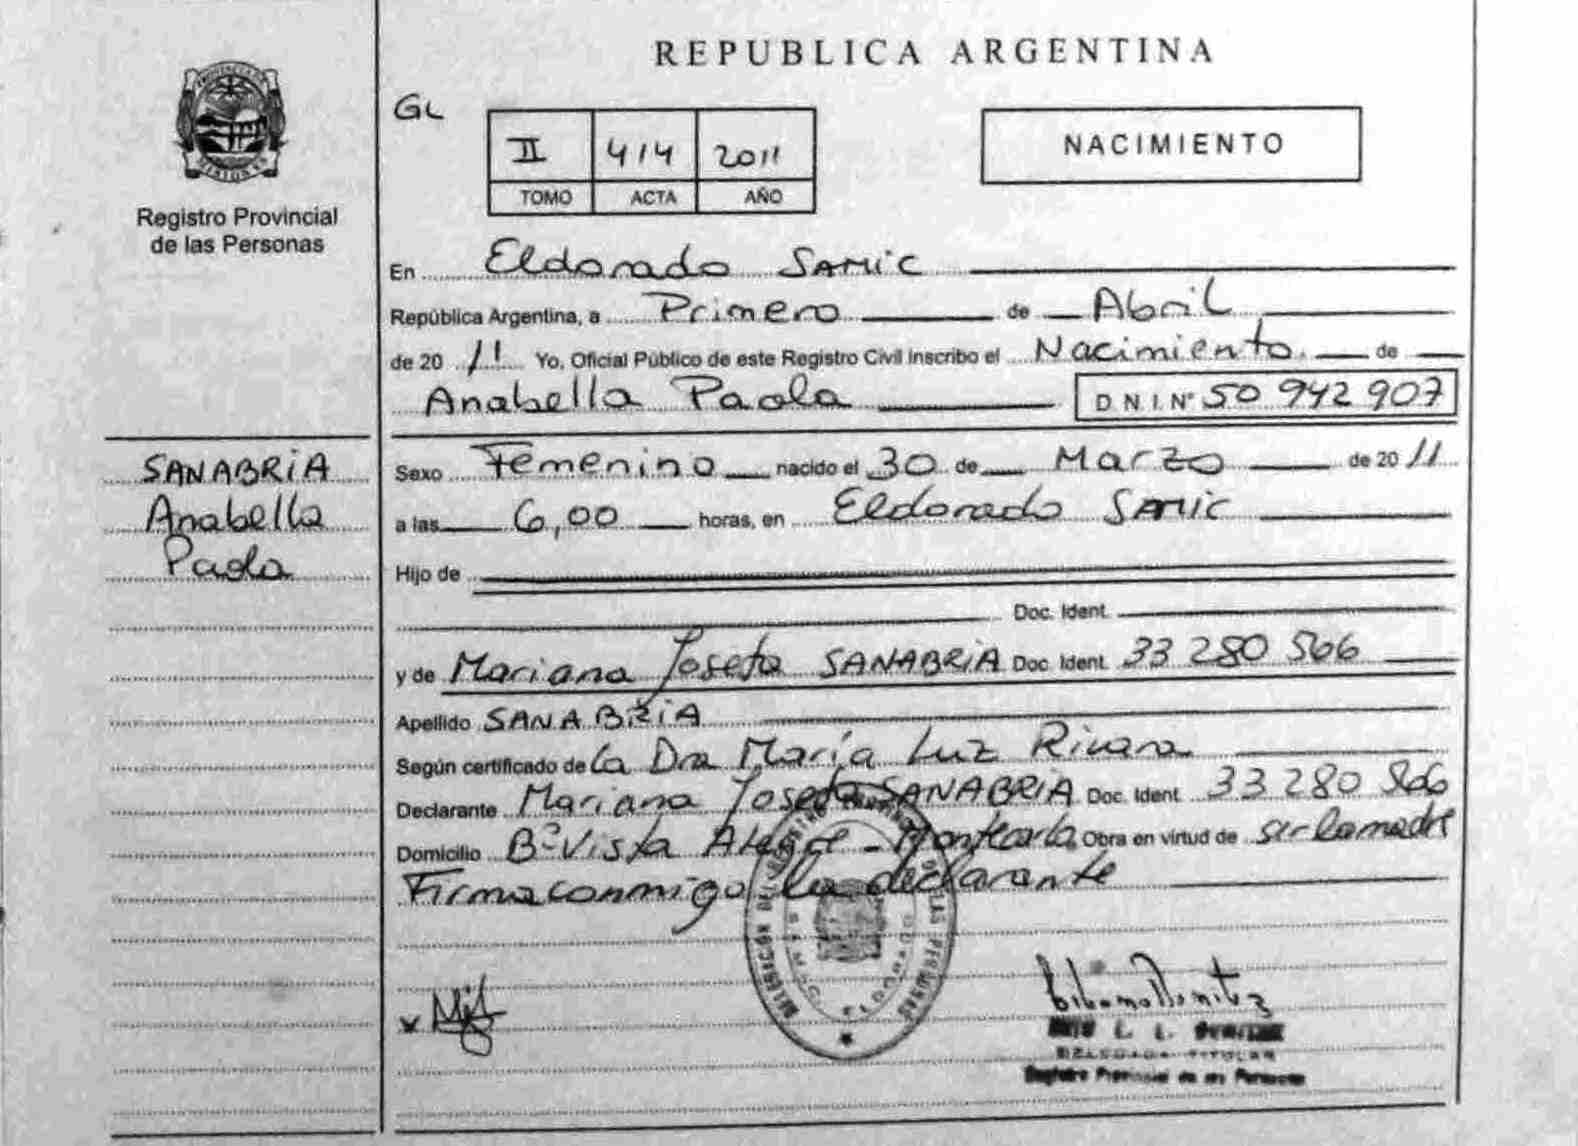 REPUBLICA ARGENTINA
GL
II 414 2011
TOMO ACTA AÑO
NACIMIENTO
Registro Provincial
de las Personas
En Eldorado SAMIC
República Argentina, a Primero de Abril
de 2011 Yo, Oficial Público de este Registro Civil inscribo el Nacimiento de
Anabella Paola D.N.I. Nº 50 942 907
SANABRIA
Anabella
Paola
Sexo Femenino nacido el 30 de Marzo de 2011
a las 6,00 horas, en Eldorado SAMIC
Hijo de
Doc. Ident.
y de Mariana Josefa SANABRIA Doc. Ident. 33 280 566
Apellido SANABRIA
Según certificado de la Dra María Luz Rivara
Declarante Mariana Josefa SANABRIA Doc. Ident. 33 280 566
Domicilio Bº Vista Alegre - Montecarlo Obra en virtud de ser la madre
Firma conmigo la declarante
DELEGADA TITULAR
Registro Provincial de las Personas